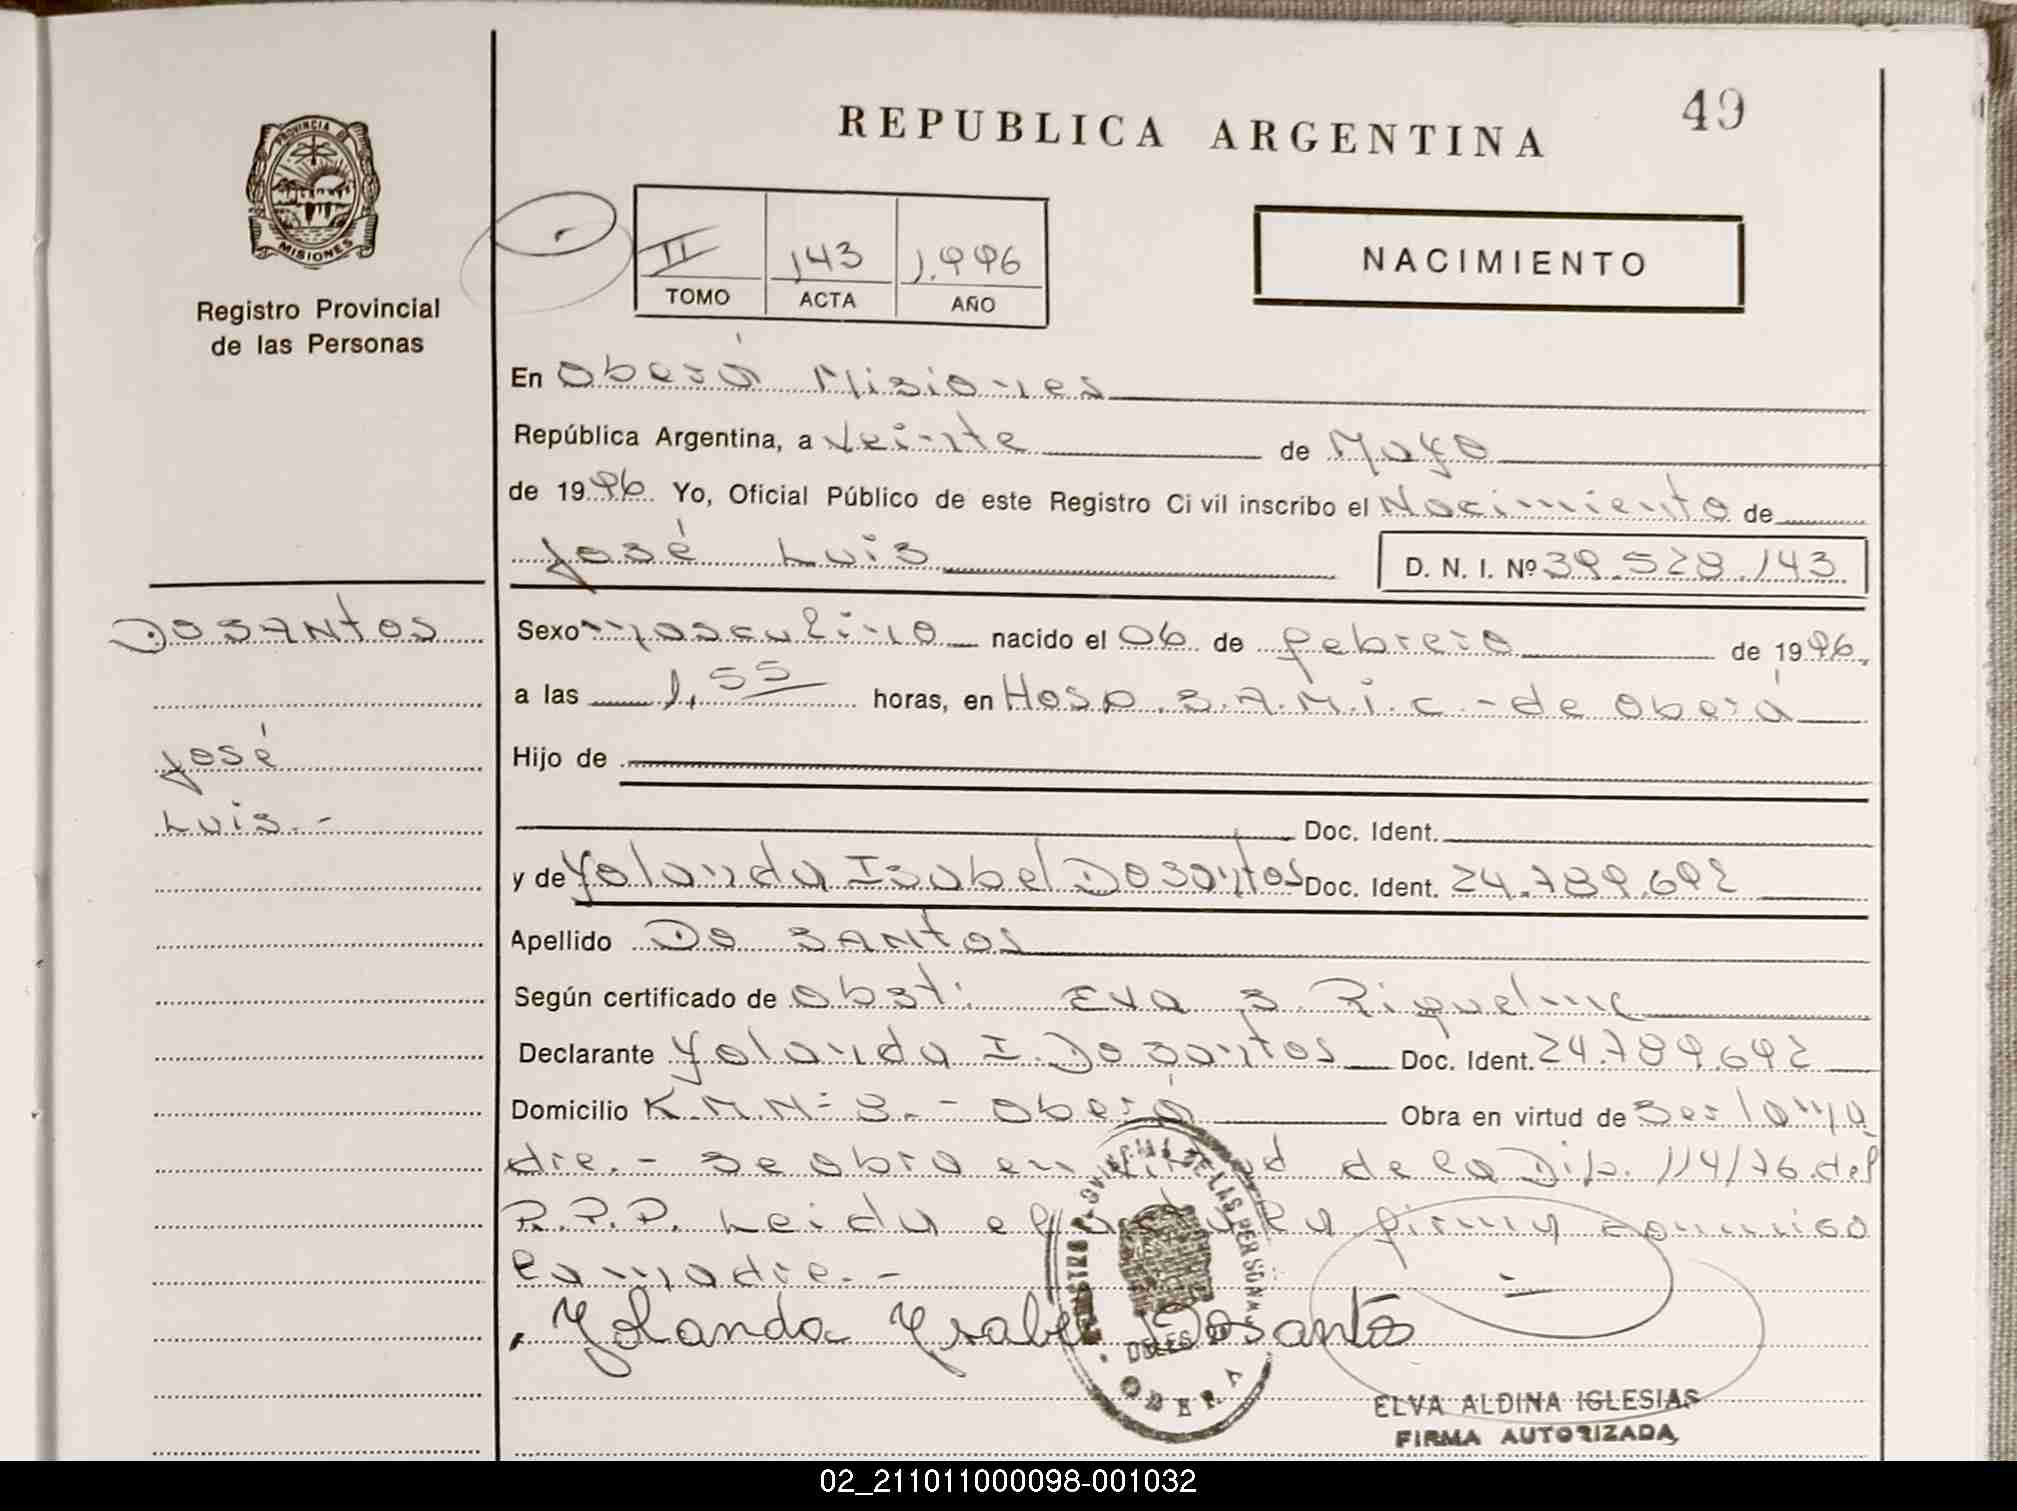 49
REPUBLICA ARGENTINA
PROVINCIA DE MISIONES
Registro Provincial
de las Personas
II 143 1.996
TOMO ACTA AÑO
NACIMIENTO
En Oberá Misiones
República Argentina, a Veinte de Mayo
de 1996 Yo, Oficial Público de este Registro Civil inscribo el Nacimiento de
José Luis D. N. I. Nº 39.528.143
DOSANTOS
José
Luis.-
Sexo masculino nacido el 06 de febrero de 1996,
a las 1,55 horas, en Hosp. S.A.M.i.c.- de Oberá
Hijo de
Doc. Ident.
y de Yolanda Isabel Dosantos Doc. Ident. 24.789.692
Apellido DO SANTOS
Según certificado de Obst. Eva S. Riquelme
Declarante Yolanda I. Dosantos Doc. Ident. 24.789.692
Domicilio K.M Nº 3.- Oberá Obra en virtud de Ser la ma
dre.- Se obra en virtud de la Dip. 114/76 del
R.P.P. Leida el acta la firma conmigo
la madre.-
Yolanda Ysabel Dosantos
REGISTRO PROVINCIAL DE LAS PERSONAS
DELEG.
OBERA
ELVA ALDINA IGLESIAS
FIRMA AUTORIZADA
02_211011000098-001032